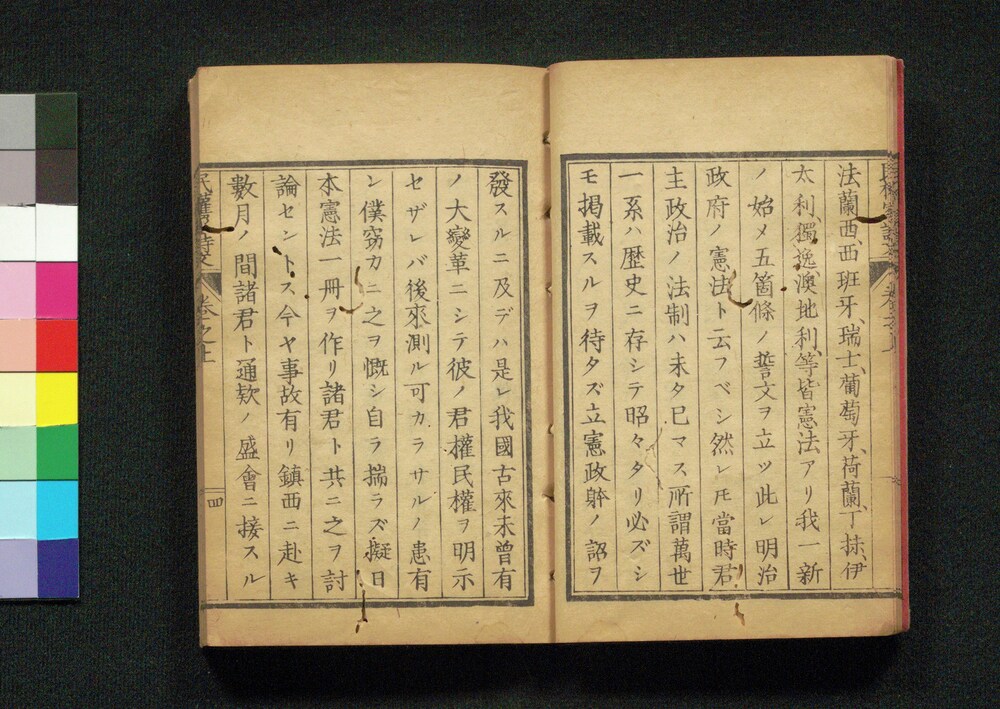 法蘭西、西班牙、瑞士、葡萄牙、荷蘭、丁抹、伊
太利、獨逸、澳地利、等皆憲法アリ我一新
ノ始メ五箇條ノ誓文ヲ立ツ此レ明治
政府ノ憲法ト云フベシ然レ𪜈當時君
主政治ノ法制ハ未タ已マス所謂萬世
一系ハ歴史ニ存シテ昭々タリ必ズシ
モ掲載スルヲ待タズ立憲政躰ノ詔ヲ
發スルニ及デハ是レ我國古來未曾有
ノ大變革ニシテ彼ノ君權民權ヲ明示
セザレバ後來測ル可カラサルノ患有
ン僕竊カニ之ヲ慨シ自ラ揣ラズ擬日
本憲法一冊ヲ作リ諸君ト共ニ之ヲ討
論セントス今ヤ事故有リ鎮西ニ赴キ
數月ノ間諸君ト通欵ノ盛會ニ接スル
卷之上
四